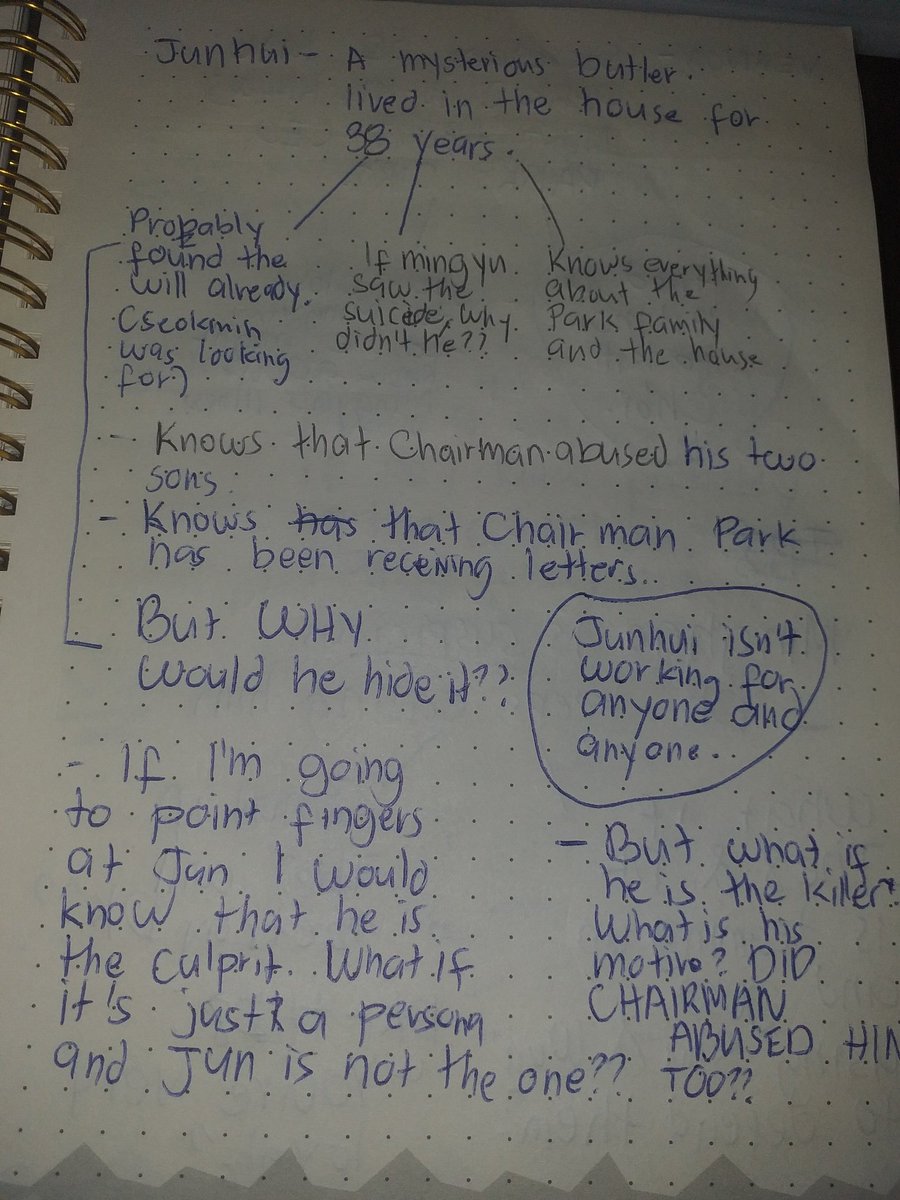 Junhui - A mysterious butler.
lived in the house for
38 years.
Probably
found the
will already.
(seokmin
was looking
for)
If mingyu
saw the
suicide, why
didn't he??
Knows everything
about the
Park family
and the house
- Knows that Chairman abused his two
sons.
- Knows has that Chairman Park
has been receiving letters.
But WHY
would he hide it??
Junhui isn't
working for
anyone and
anyone.
- If I'm going
to point fingers
at Jun I would
know that he is
the culprit. What if
it's just a persona
and Jun is not the one??
- But what if
he is the killer?
What is his
motive? DID
CHAIRMAN
ABUSED HIM
TOO??